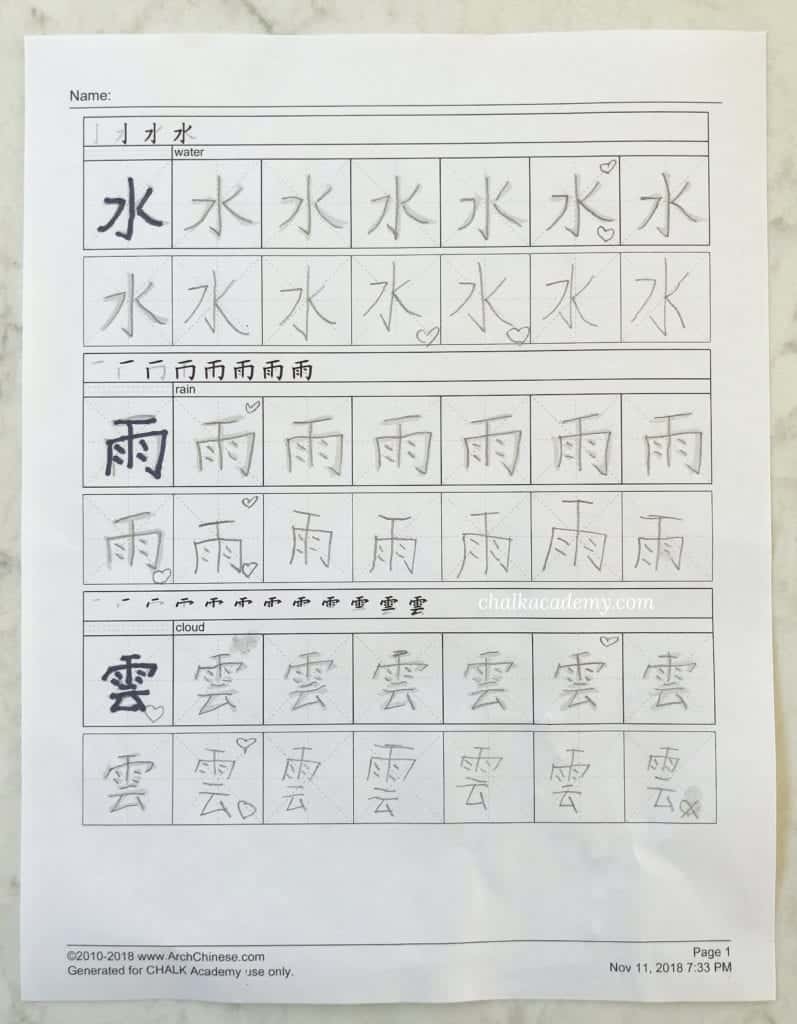 Name:
水
water
水 水 水 水 水 水 水
水 水 水 水 水 水 水
雨
rain
雨 雨 雨 雨 雨 雨 雨
雨 雨 雨 雨 雨 雨 雨
雲
chalkacademy.com
cloud
雲 雲 雲 雲 雲 雲 雲
雲 雲 雲 雲 雲 雲 雲
©2010-2018 www.ArchChinese.com
Generated for CHALK Academy use only.
Page 1
Nov 11, 2018 7:33 PM